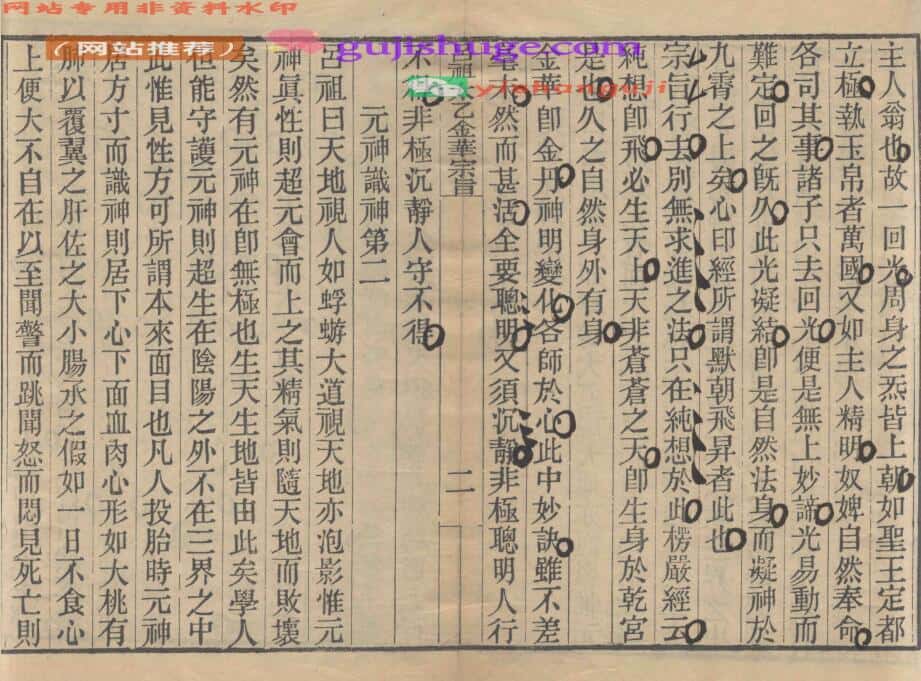 网站专用非资料水印
网站推荐
gujishuge.com
yishanguji
主人翁也故一回光周身之炁皆上朝如聖王定都
立極執玉帛者萬國又如主人精明奴婢自然奉命
各司其事諸子只去回光便是無上妙諦光易動而
難定回之旣久此光凝結卽是自然法身而凝神於
九霄之上矣心印經所謂默朝飛昇者此也
宗旨行去別無求進之法只在純想於此楞嚴經云
純想卽飛必生天上天非蒼蒼之天卽生身於乾宮
是也久之自然身外有身
金華卽金丹神明變化各師於心此中妙訣雖不差
毫末然而甚活全要聰明又須沉靜非極聰明人行
乙金華宗旨
二
不得非極沉靜人守不得
元神識神第二
呂祖曰天地視人如蜉蝣大道視天地亦泡影惟元
神眞性則超元會而上之其精氣則隨天地而敗壞
矣然有元神在卽無極也生天生地皆由此矣學人
但能守護元神則超生在陰陽之外不在三界之中
此惟見性方可所謂本來面目也凡人投胎時元神
居方寸而識神則居下心下面血肉心形如大桃有
肺以覆翼之肝佐之大小腸承之假如一日不食心
上便大不自在以至聞驚而跳聞怒而悶見死亡則